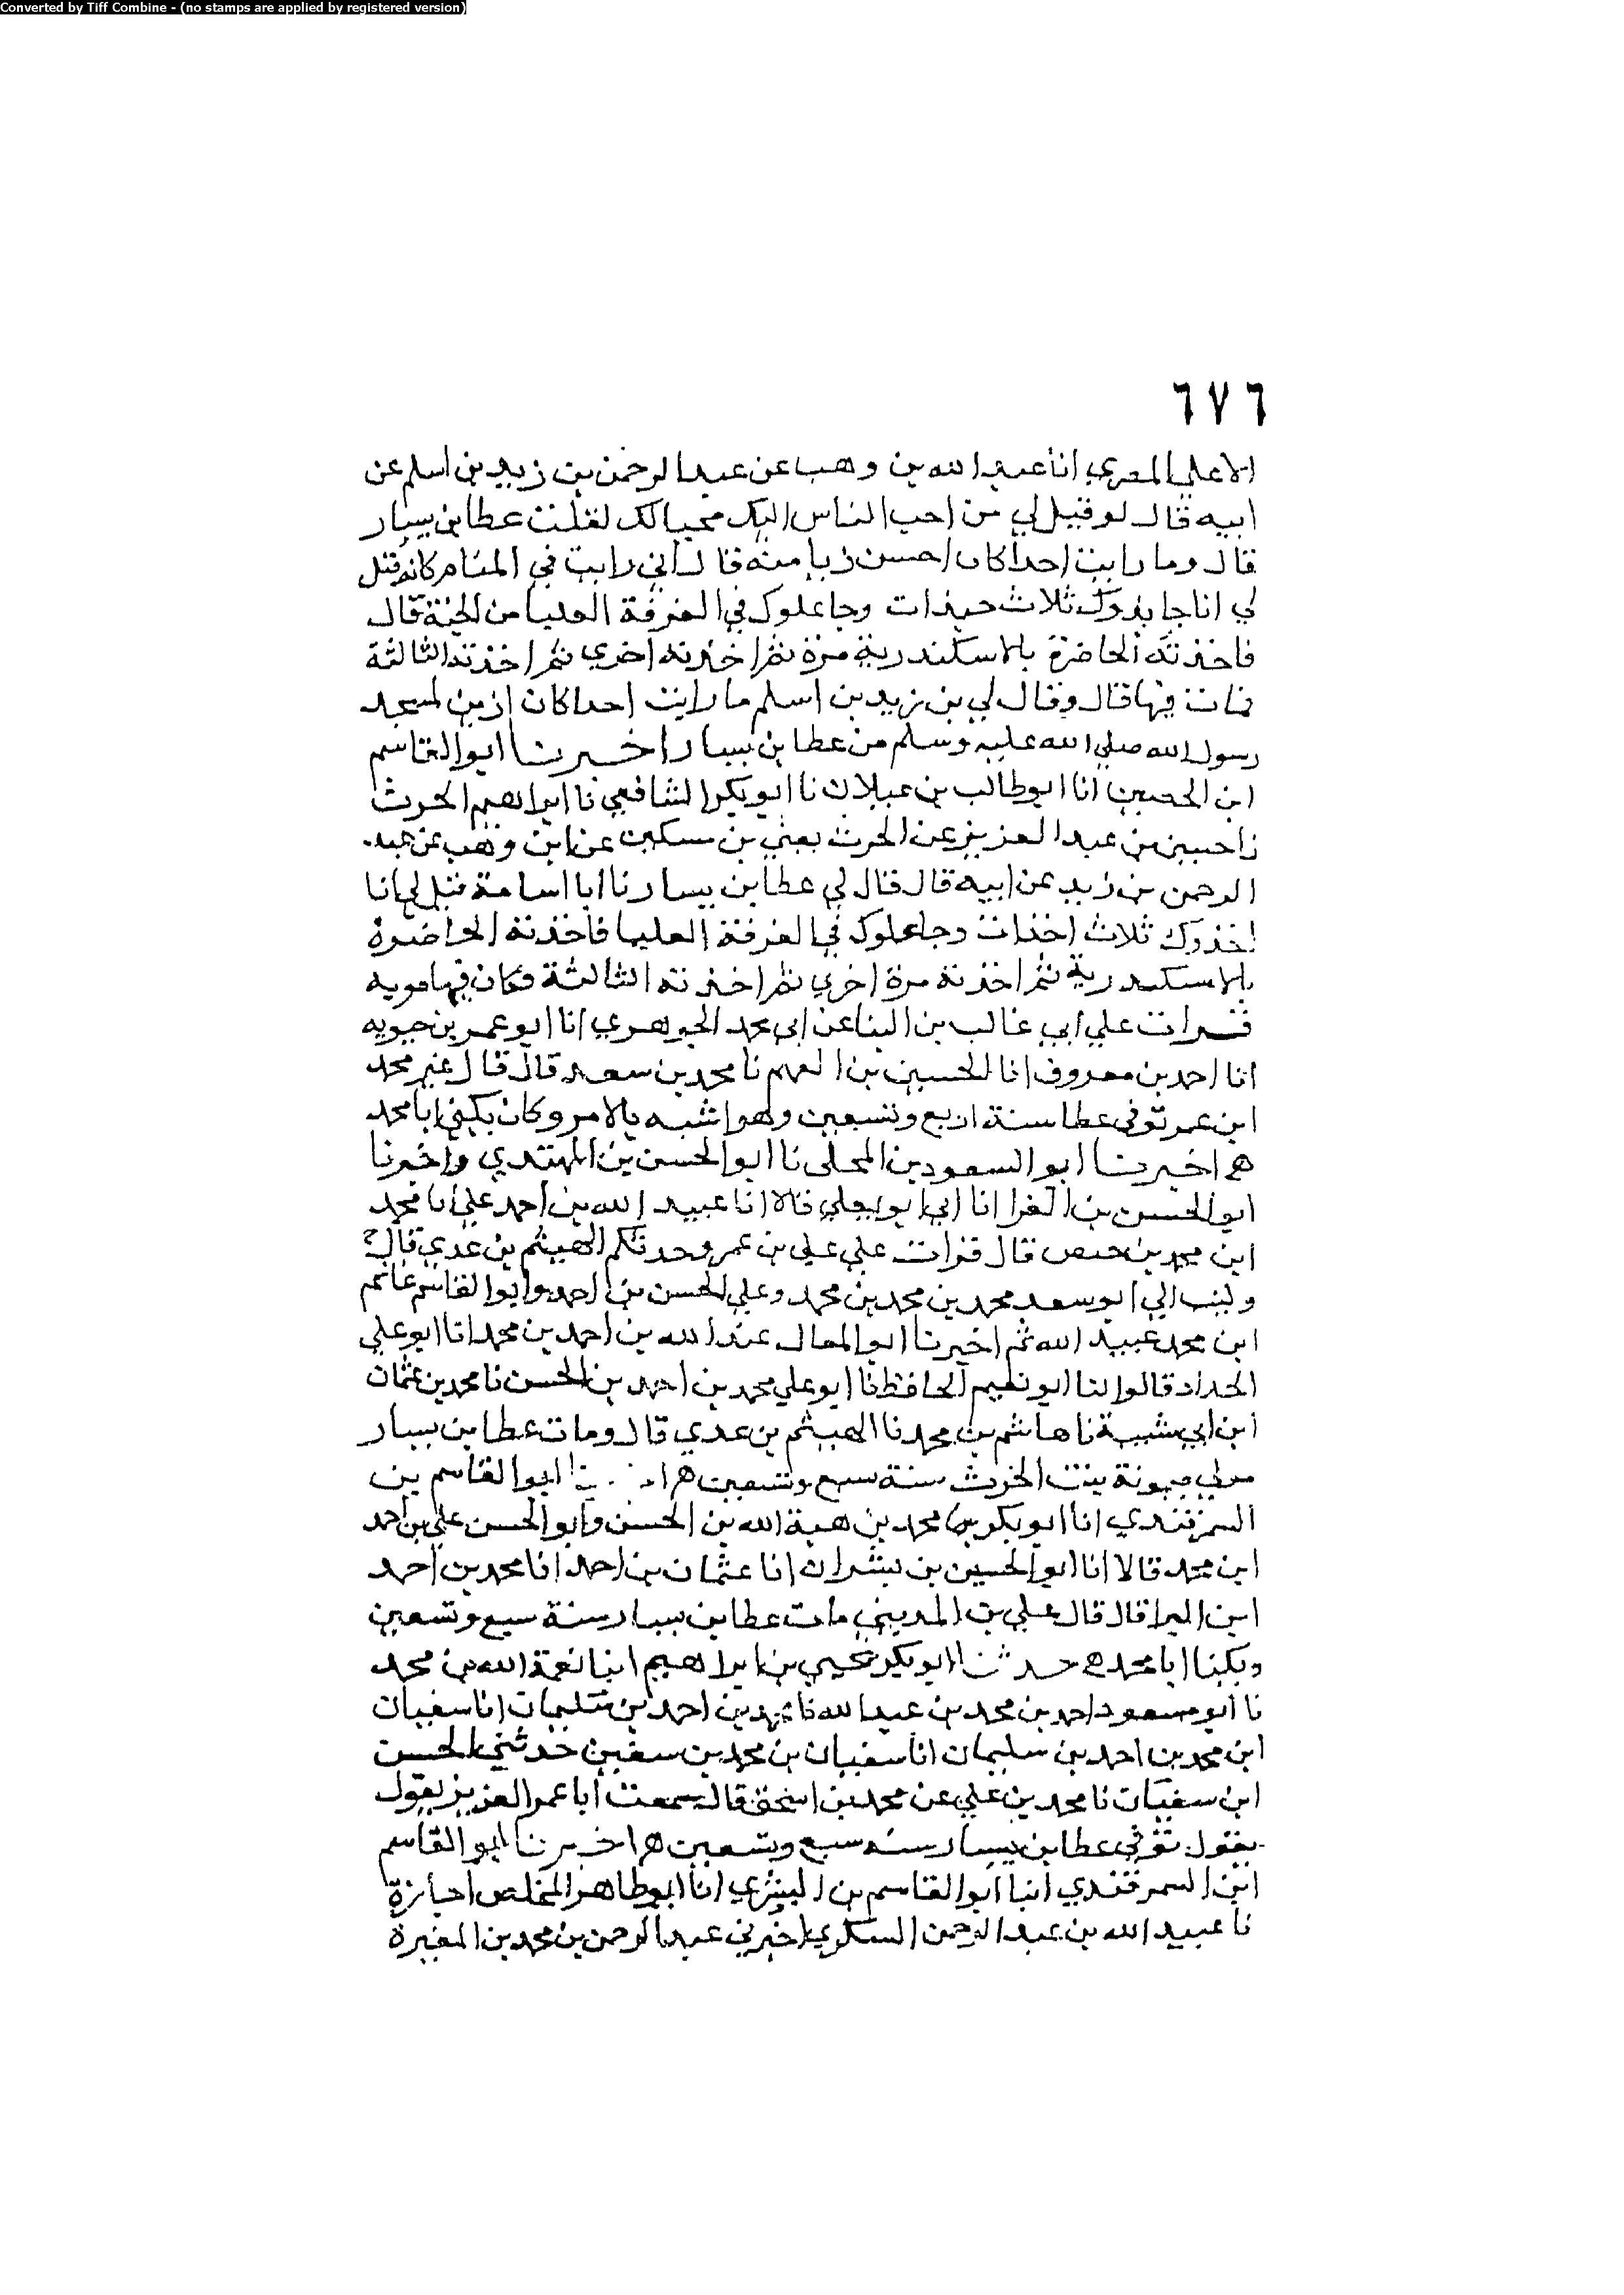 Converted by Tiff Combine - (no stamps are applied by registered version)
٦٧٦
الاعلي المصري انا عبد الله بن وهب عن عبد الرحمن بن زيد بن اسلم عن
ابيه قال لو قيل لي من احب الناس اليك محيا لك لقلت عطا بن يسار
قال وما رايت احدا كان احسن زيا منه قال اني رايت في المنام كانه قيل
لي انا جا بذوك ثلاث جبذات وجاعلوك في الغرفة العليا من الجنة قال
فاخذته الخاضرة بالاسكندرية مرة ثم اخذته اخري ثم اخذته الثالثة
فمات فيها قال وقال لي بن زيد بن اسلم ما رايت احدا كان ازين لمسجد
رسول الله صلي الله عليه وسلم من عطا بن يسار اخبرنا ابو القاسم
ابن الحصين انا ابو طالب بن غيلان نا ابو بكر الشافعي نا ابراهيم الحرث
نا حسين بن عبد العزيز عن الحرث يعني بن مسكين عن ابن وهب عن عبد
الرحمن بن زيد عن ابيه قال قال لي عطا بن يسار نا ابا اسامة قيل لي انا
اخذوك ثلاث اخذات وجاعلوك في الغرفة العليا فاخذته الخاضرة
بالاسكندرية ثم اخذته مرة اخري ثم اخذته الثالثة فكان فيها مويه
قرات علي ابي غالب بن البنا عن ابي محمد الجوهري انا ابو عمر بن حيويه
انا احمد بن معروف انا الحسين بن الفهم نا محمد بن سعد قال قال غير محمد
ابن عمر توفي عطا سنة اربع وتسعين وهو اشبه بالامر وكان يكني ابا محمد
ه اخبرنا ابو السعود بن المجلي نا ابو الحسن بن المهتدي واخبرنا
ابو الحسن بن الفرا انا ابي ابو يعلي قالا انا عبيد الله بن احمد علي انا محمد
ابن محمد بن حفص قال قرات علي علي بن عمرو حدثكم الهيثم بن عدي قال ح
وكتب الي ابو سعد محمد بن محمد بن محمد وعلي الحسن بن احمد وابو القاسم غانم
ابن محمد عبيد الله ثم اخبرنا ابو المعالي عبد الله بن احمد بن محمد انا ابو علي
الحداد قالوا لنا ابو نعيم الحافظ نا ابو علي محمد بن احمد بن الحسن نا محمد بن عثمان
ابن ابي شيبة نا هاشم بن محمد نا الهيثم بن عدي قال ومات عطا بن يسار
مولي ميمونة بنت الحرث سنة سبع وتسعين ه ابو القاسم بن
السمرقندي انا ابو بكر محمد بن هبة الله بن الحسن وابو الحسن علي بن احمد
ابن محمد قالا انا ابو الحسين بن بشران انا عثمان بن احمد انا محمد بن احمد
ابن البرا قال قال علي بن المديني مات عطا بن يسار سنة سبع وتسعين
ويكنا ابا محمد ه حدثنا ابو بكر يحيي بن ابراهيم ابنا نعمة الله بن محمد
نا ابو مسعود احمد بن محمد بن عبد الله نا محمد بن احمد بن سليمان انا سفيان
ابن محمد بن احمد بن سليمان انا سفيان بن محمد بن سفين حدثني الحسن
ابن سفيان نا محمد بن علي عن محمد بن اسحق قال سمعت ابا عمر العزيز يقول
يقول توفي عطا بن يسار سنه سبع وتسعين ه اخبرنا ابو القاسم
ابن السمرقندي ابنا ابو القاسم بن البشري انا ابو طاهر المخلص اجازة
نا عبيد الله بن عبد الرحمن السكري اخبرني عبد الرحمن بن محمد بن المغيرة